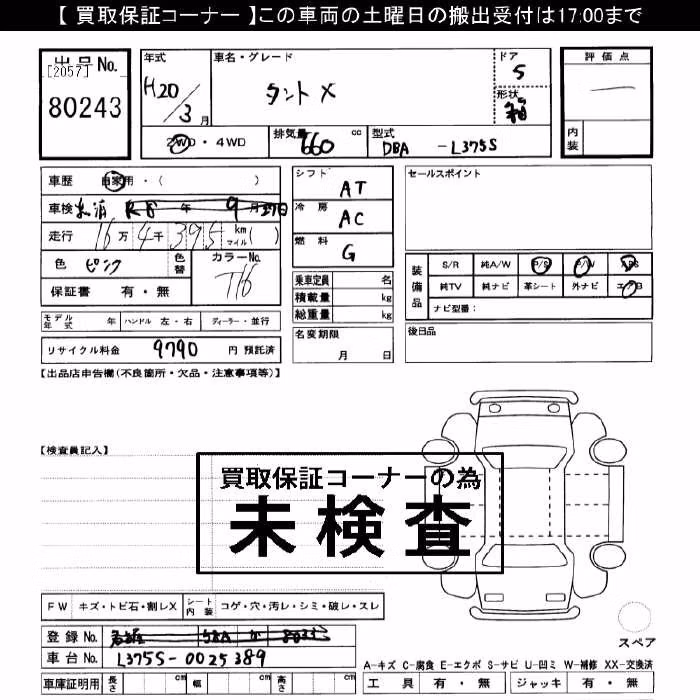 【 買取保証コーナー 】この車両の土曜日の搬出受付は17:00まで
出品No.
[2057]
80243
年式
H20/3月
車名・グレード
タント X
ドア
5
形状
箱
評価点
一
内装
2WD・4WD
排気量 660 cc
型式 DBA -L375S
車歴 自家用・( )
車検 R8年 9月
走行 16万 4千 395 km マイル( )
色 ピンク
色替
カラーNo.
T16
保証書 有・無
シフト AT
冷房 AC
燃料 G
乗車定員 名
積載量 kg
総重量 kg
名変期限
月 日
セールスポイント
装備品
S/R 純A/W P/S P/W ABS
純TV 純ナビ 革シート 外ナビ エアB
ナビ型番:
後日品
モデル年式 年 ハンドル 左・右 ディーラー・並行
リサイクル料金 9790 円 預託済
【出品店申告欄(不良箇所・欠品・注意事項等)】
【検査員記入】
買取保証コーナーの為
未検査
FW キズ・トビ石・割レX シート内装 コゲ・穴・汚レ・シミ・破レ・スレ
登録No.
車台No. L375S-0025389
車庫証明用 長さ cm 幅 cm 高さ cm
スペア
A-キズ C-腐食 E-エクボ S-サビ U-凹ミ W-補修 XX-交換済
工具 有・無 ジャッキ 有・無